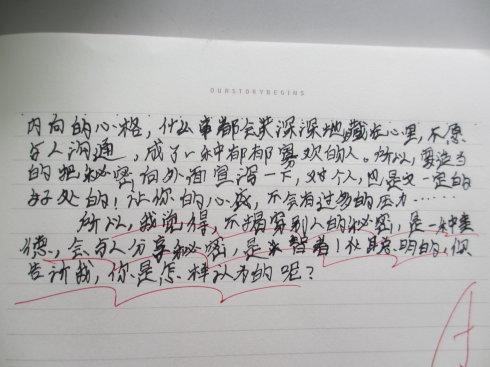 OURSTORYBEGINS
内向的心格，什么事都会深深地藏在心里，不愿
与人沟通，成了一种郁郁寡欢的人。所以，要适当
的把秘密向外面宣泄一下，对个人，也是又一定的
好处的！让你的心底，不会有过多的压力……
所以，我觉得，不揭穿别人的秘密，是一种美
德，会与人分享秘密，是智者！ 明的，你
告诉我，你是怎样认为的呢？